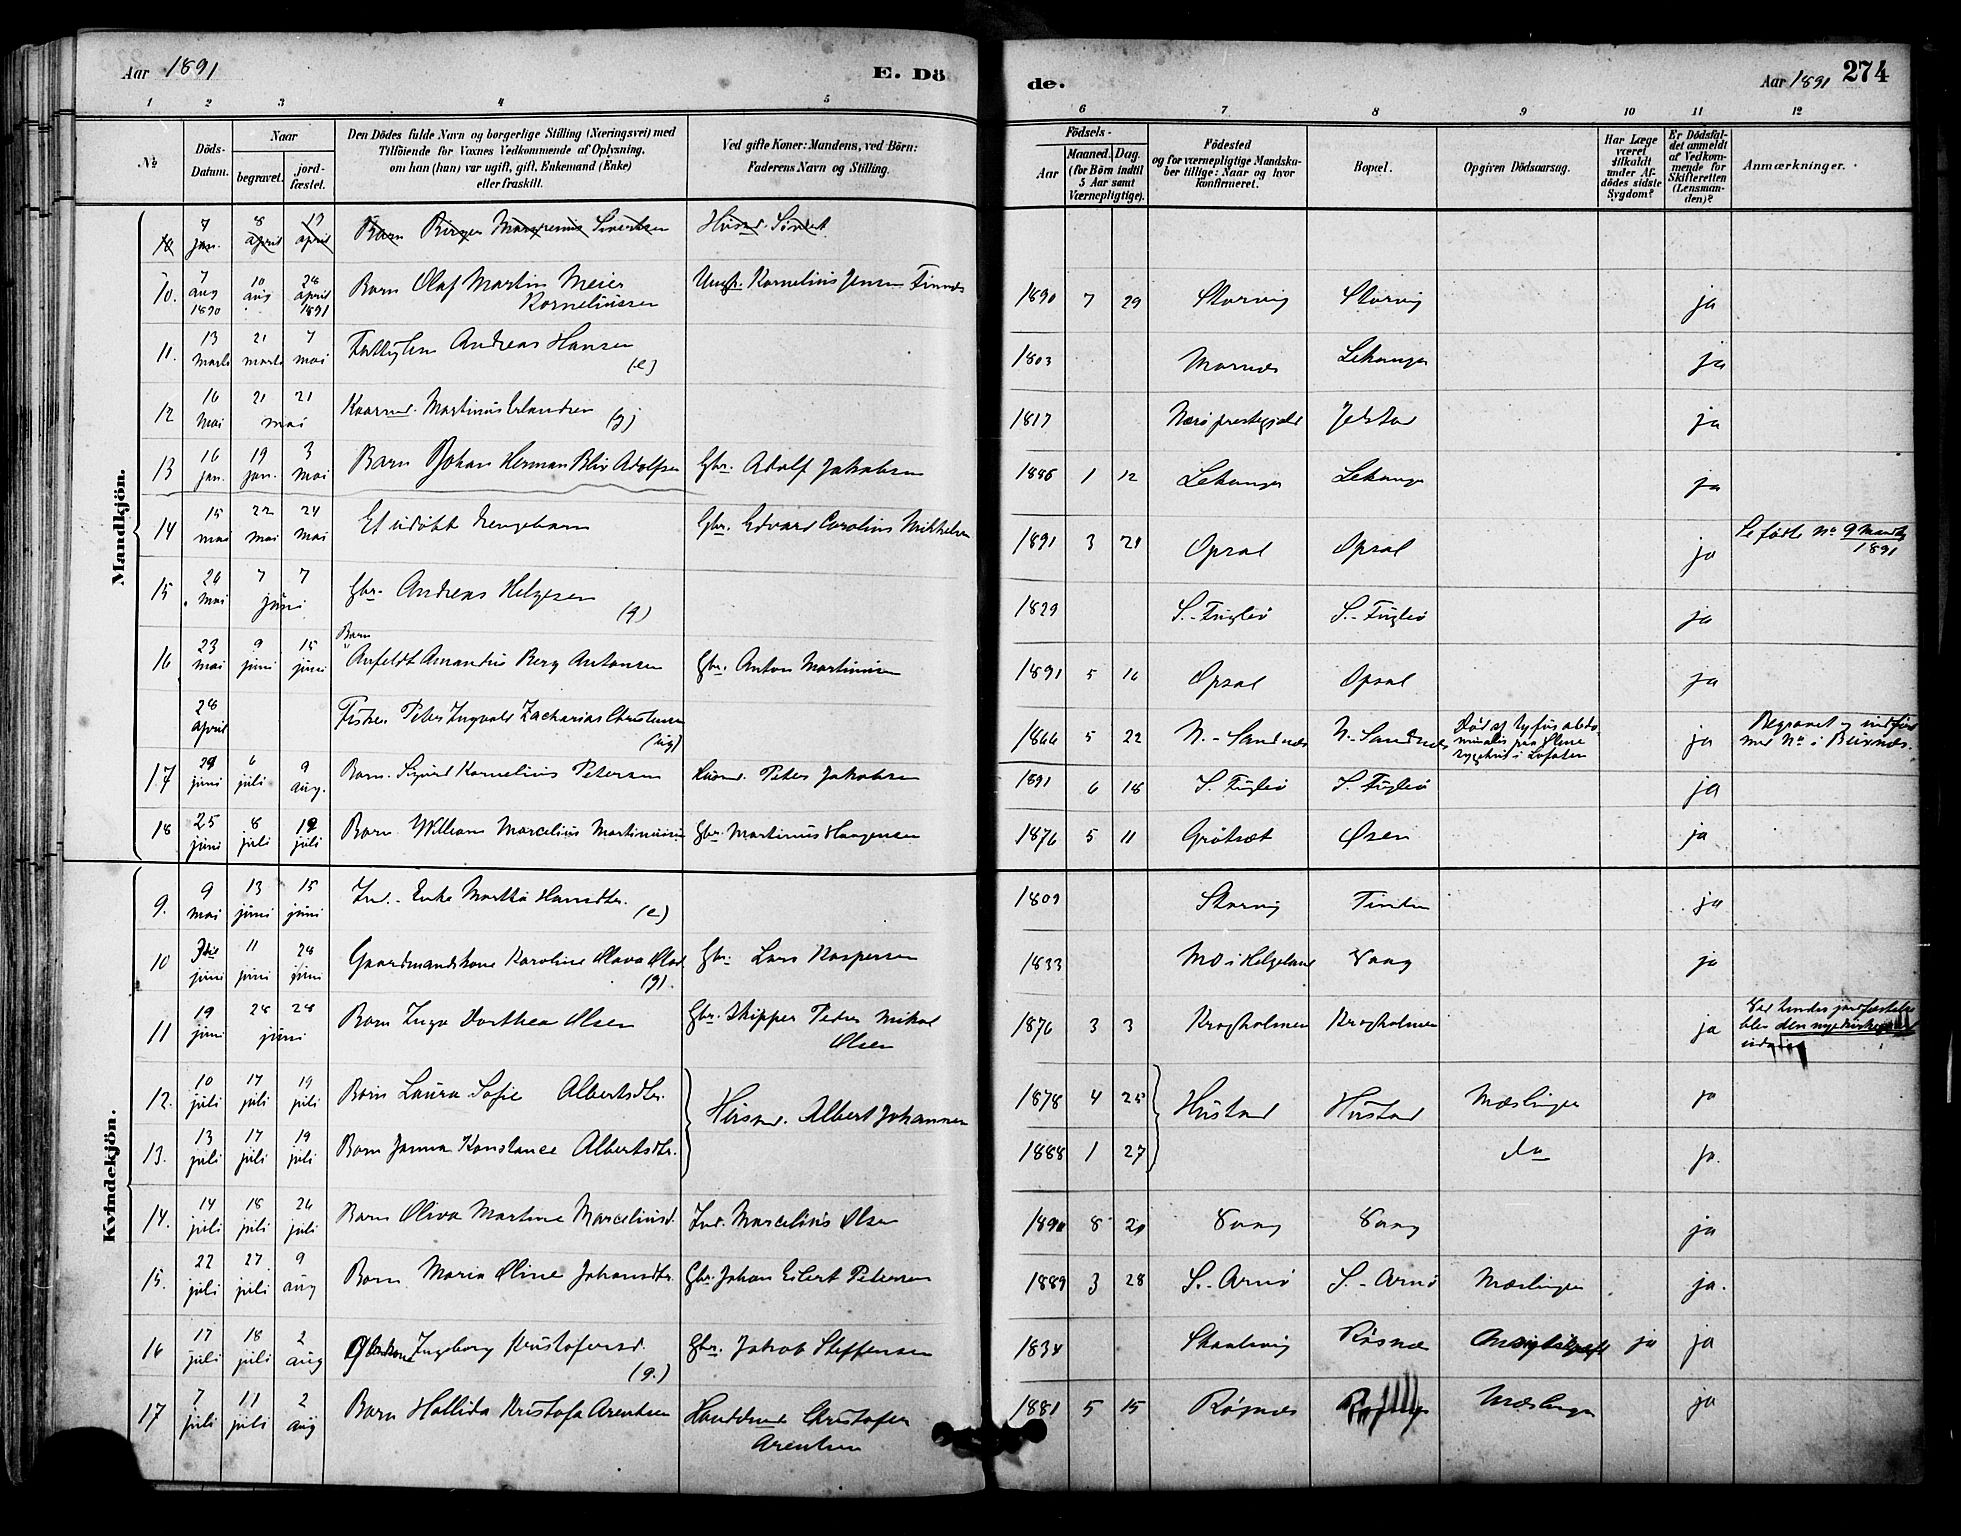 Aar 1891 E. Dö de. Aar 1891 274
1 2 3 4 5 6 7 8 9 10 11 12
No
Döds-Datum.
Naar
begravet.
jordfæstet.
Den Dödes fulde Navn og borgerlige Stilling (Næringsvei) med
Tilföiende for Voxnes Vedkommende af Oplysning,
om han (hun) var ugift, gift, Enkemand (Enke)
eller fraskilt.
Ved gifte Koner: Mandens, ved Börn:
Faderens Navn og Stilling.
Födsels-
Aar
Maaned. Dag.
(for Börn indtil
5 Aar samt
Værnepligtige).
Födested
og for værnepligtige Mandska-
ber tillige: Naar og hvor
konfirmeret.
Bopæl.
Opgiven Dödsaarsag.
Har Læge
været
tilkaldt
under Af-
dödes sidste
Sygdom?
Er Dödsfal-
det anmeldt
af Vedkom-
mende for
Skifteretten
(Lensman-
den)?
Anmærkninger.
Mandkjön.
10 7 jan. 8 april 12 april Barn Birger Sivertsen Husmd.
10. 7 aug 1890 10 aug 28 april 1891 Barn Olaf Martin Meier Korneliussen Kornelius Jensen 1890 7 29 Storvig Storvig ja
11. 13 marts 21 marts 7 mai Andreas Hansen (e) 1803 Marnæs Lekanger ja
12 16 mai 21 21 mai Kaarmd. Martinus Erlandsen (g) 1817 Nærø prestegjeld Jelstad ja
13 16 jan. 19 jan. 3 mai Barn Johan Herman Adolfsen Gbr. Adolf Jakobsen 1886 1 12 Lekanger Lekanger ja
14 15 mai 22 mai 24 mai Et udøbt Gbr. Edvard Carolius Mikkelsen 1891 3 21 Opsal Opsal ja Se fødte No 9 Mandkj 1891
15 24 mai 7 7 juni Gbr. Andreas Helgesen (g) 1829 S.-Fuglø S.-Fuglø ja
16 23 mai 9 juni 15 juni Barn Anfeldt Amandus Berg Antonsen Gbr. Anton Martinusen 1891 5 16 Opsal Opsal ja
28 april Fisker Peter Ingvald Zacharias Christensen (ug) 1866 5 22 N.-Sandnæs N.-Sandnæs Død af tyfus abdominalis paa sygehus i Lofoten ja Begravet og indført med No i Buxnæs.
17 29 juni 6 juli 9 aug. Barn Sigurd Kornelius Petersen Husmd. Peter Jakobsen 1891 6 18 S. Fuglø S. Fuglø ja
18 25 juni 8 juli 12 juli Barn William Marcelius Martinusen Gbr. Martinus Haagensen 1876 5 11 Grøtsæt Øsen ja
Kvindekjön.
9. 9 mai 13 juni 15 juni Ind.- Enke Martha Hansdtr. (e) 1809 Storvig ja
10 3die juni 11 juni 28 juni Gaardmandskone Karoline Olava Olsd (g). Gbr. Lars Kaspersen 1833 Mo i Helgeland Vaag ja
11 19 juni 28 28 juni Barn Inga Dorthea Olsen Gbr. Skipper Peder Mikal Olsen 1876 3 3 Kragholmen Kragholmen ja Ved hendes jordfæstelse blev den nye kirkegaard
12. 10 juli 17 juli 19 juli Barn Laura Sofie Albertsdtr. Husmd. Albert Johannsen 1878 4 25 Hustad Hustad Mæslinger ja
13. 13 juli 17 juli 19 juli Barn Janna Konstance Albertsdtr. 1888 1 27 do ja.
14. 14 juli 18 juli 26 juli Barn Oliva Martine Marceliusd. Ind. Marcelius Olsen 1890 8 20 Vaag Vaag ja
15. 22 juli 27 juli 9 aug Barn Maria Oline Johansdtr. Gbr. Johan Eilert Petersen 1889 3 28 S.-Arnø S.-Arnø Mæslinger ja.
16 17 juli 18 juli 2 aug Ingeborg Kristofersd. (g.) Gbr. Jakob Steffensen 1834 Røsnæs ja ja
17 7 juli 11 juli 2 aug Barn Hallida Kristofa Arentsen Christofer Arentsen 1881 5 15 Røsnæs Mæslinger ja